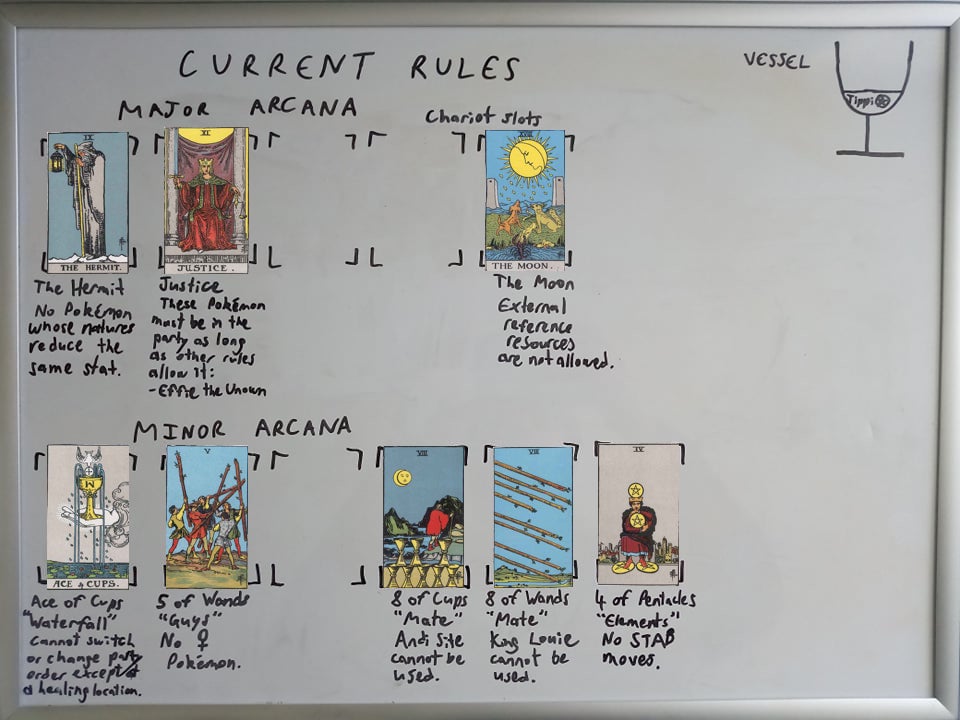 CURRENT RULES
VESSEL
Tippi
MAJOR ARCANA
Chariot slots
IX
THE HERMIT.
XI
JUSTICE.
THE MOON.
The Hermit
No Pokémon
whose natures
reduce the
same stat.
Justice
These Pokémon
must be in the
party as long
as other rules
allow it:
- Effie the Unown
The Moon
External
reference
resources
are not allowed.
MINOR ARCANA
ACE of CUPS.
V
VIII
VIII
IV
Ace of Cups
"Waterfall"
Cannot switch
or change party
order except at
a healing location.
5 of Wands
"Guys"
No ♀
Pokémon.
8 of Cups
"Mate"
Andi Site
cannot be
used.
8 of Wands
"Mate"
King Louie
cannot be
used.
4 of Pentacles
"Elements"
No STAB
moves.